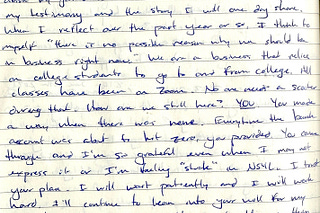 my testimony and the story I will one day share.
When I reflect over the past year or so, I think to
myself "there is no possible reason why we should be
in business right now." We are a business that relies
on college students to go to and from college. All
classes have been on Zoom. No one needs a scooter
during that. How are we still here? YOU. You made
a way when there was none. Everytime the bank
account was about to hit zero, you provided. You came
through and I'm so grateful even when I may not
express it or I'm feeling "stuck" in NSML. I trust
your plan. I will wait patiently and I will work
hard. I'll continue to lean into your will for my